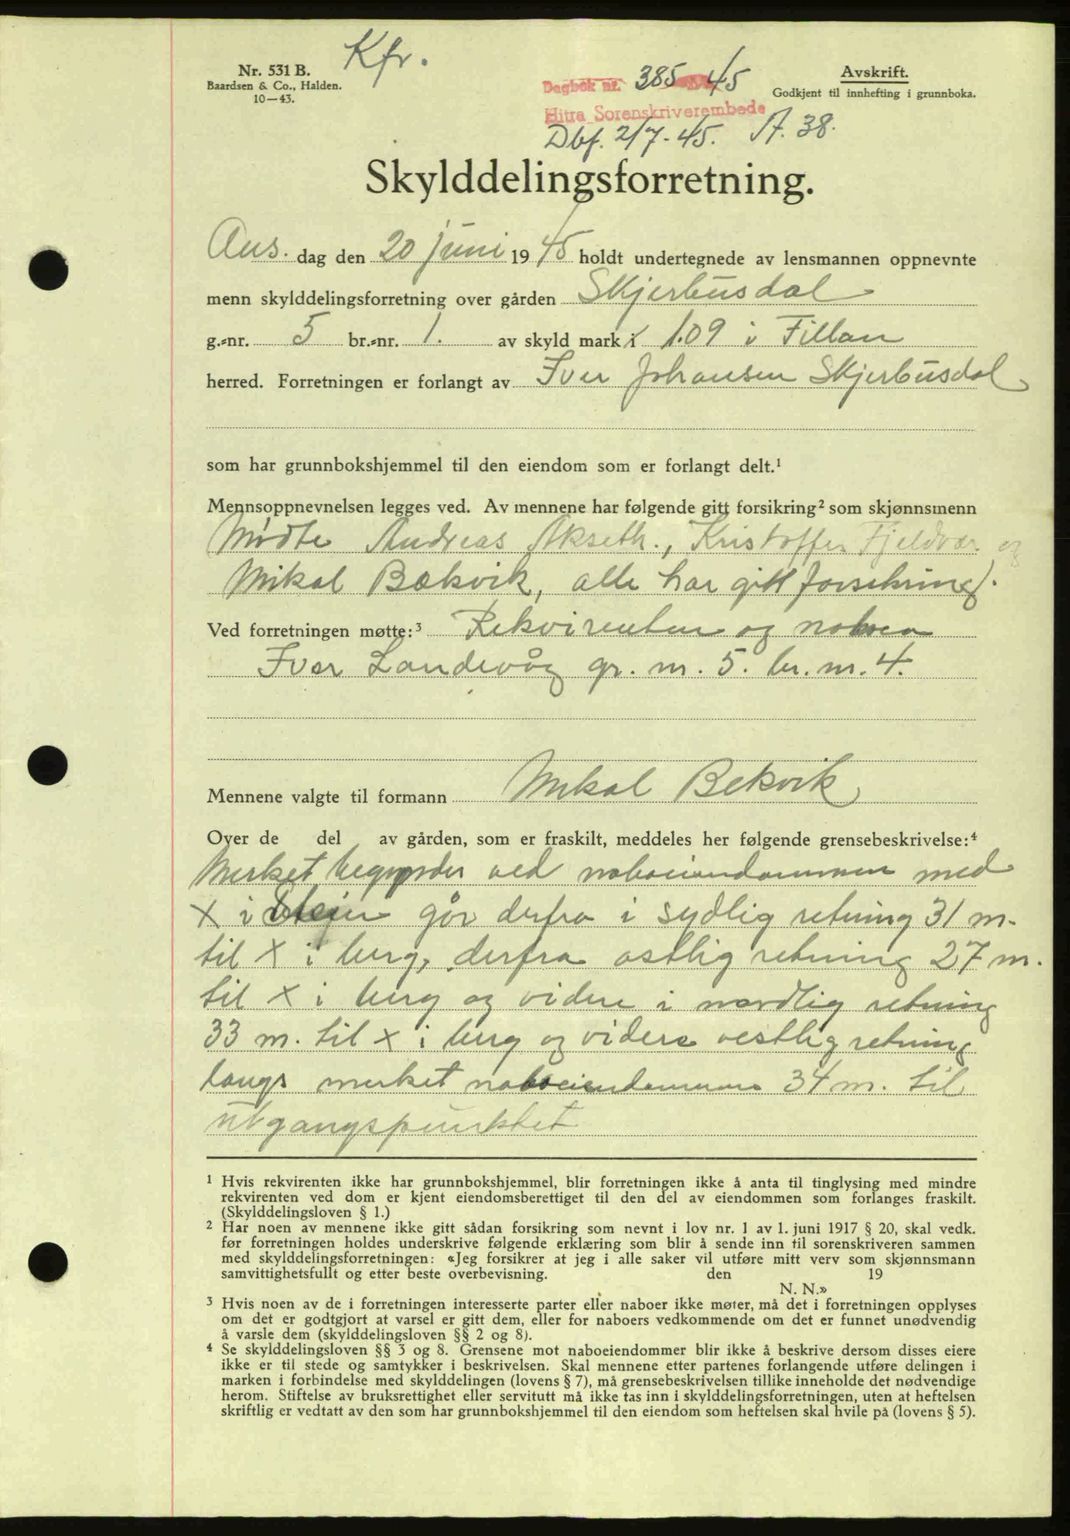 Kfr.
Nr. 531 B.
Baardsen & Co., Halden.
10—43.
Dagbok nr. 385 45
Hitra Sorenskriverembede
Dbf. 2/7-45. A. 38.
Avskrift.
Godkjent til innhefting i grunnboka.
Skylddelingsforretning.
Ons. dag den 20 juni 1945 holdt undertegnede av lensmannen oppnevnte
menn skylddelingsforretning over gården Skjerbusdal
g.-nr. 5 br.-nr. 1. av skyld mark 1.09 i Fillan
herred. Forretningen er forlangt av Iver Johansen Skjerbusdal
som har grunnbokshjemmel til den eiendom som er forlangt delt.¹
Mennsoppnevnelsen legges ved. Av mennene har følgende gitt forsikring² som skjønnsmenn
Møtte Andreas Akseth., Kristoffer Fjeldvær og
Mikal Bækvik, alle har gitt forsikring.
Ved forretningen møtte:³ Rekvirenten og naboen
Iver Landevåg gr. nr. 5. br. nr. 4.
Mennene valgte til formann Mikal Bekvik
Over de del av gården, som er fraskilt, meddeles her følgende grensebeskrivelse:⁴
Merket begynder ved naboeiendommen med
X i Stein går derfra i sydlig retning 31 m.
til X i berg, derfra østlig retning 27 m.
til X i berg og videre i nordlig retning
33 m. til X i berg og videre vestlig retning
langs merket naboeiendommens 34 m. til
utgangspunktet
¹ Hvis rekvirenten ikke har grunnbokshjemmel, blir forretningen ikke å anta til tinglysing med mindre
rekvirenten ved dom er kjent eiendomsberettiget til den del av eiendommen som forlanges fraskilt.
(Skylddelingsloven § 1.)
² Har noen av mennene ikke gitt sådan forsikring som nevnt i lov nr. 1 av 1. juni 1917 § 20, skal vedk.
før forretningen holdes underskrive følgende erklæring som blir å sende inn til sorenskriveren sammen
med skylddelingsforretningen: «Jeg forsikrer at jeg i alle saker vil utføre mitt verv som skjønnsmann
samvittighetsfullt og etter beste overbevisning. den 19
N. N.»
³ Hvis noen av de i forretningen interesserte parter eller naboer ikke møter, må det i forretningen opplyses
om det er godtgjort at varsel er gitt dem, eller for naboers vedkommende om det er funnet unødvendig
å varsle dem (skylddelingsloven §§ 2 og 8).
⁴ Se skylddelingsloven §§ 3 og 8. Grensene mot naboeiendommer blir ikke å beskrive dersom disses eiere
ikke er til stede og samtykker i beskrivelsen. Skal mennene etter partenes forlangende utføre delingen i
marken i forbindelse med skylddelingen (lovens § 7), må grensebeskrivelsen tillike inneholde det nødvendige
herom. Stiftelse av bruksrettighet eller servitutt må ikke tas inn i skylddelingsforretningen, uten at heftelsen
skriftlig er vedtatt av den som har grunnbokshjemmel til den eiendom som heftelsen skal hvile på (lovens § 5).